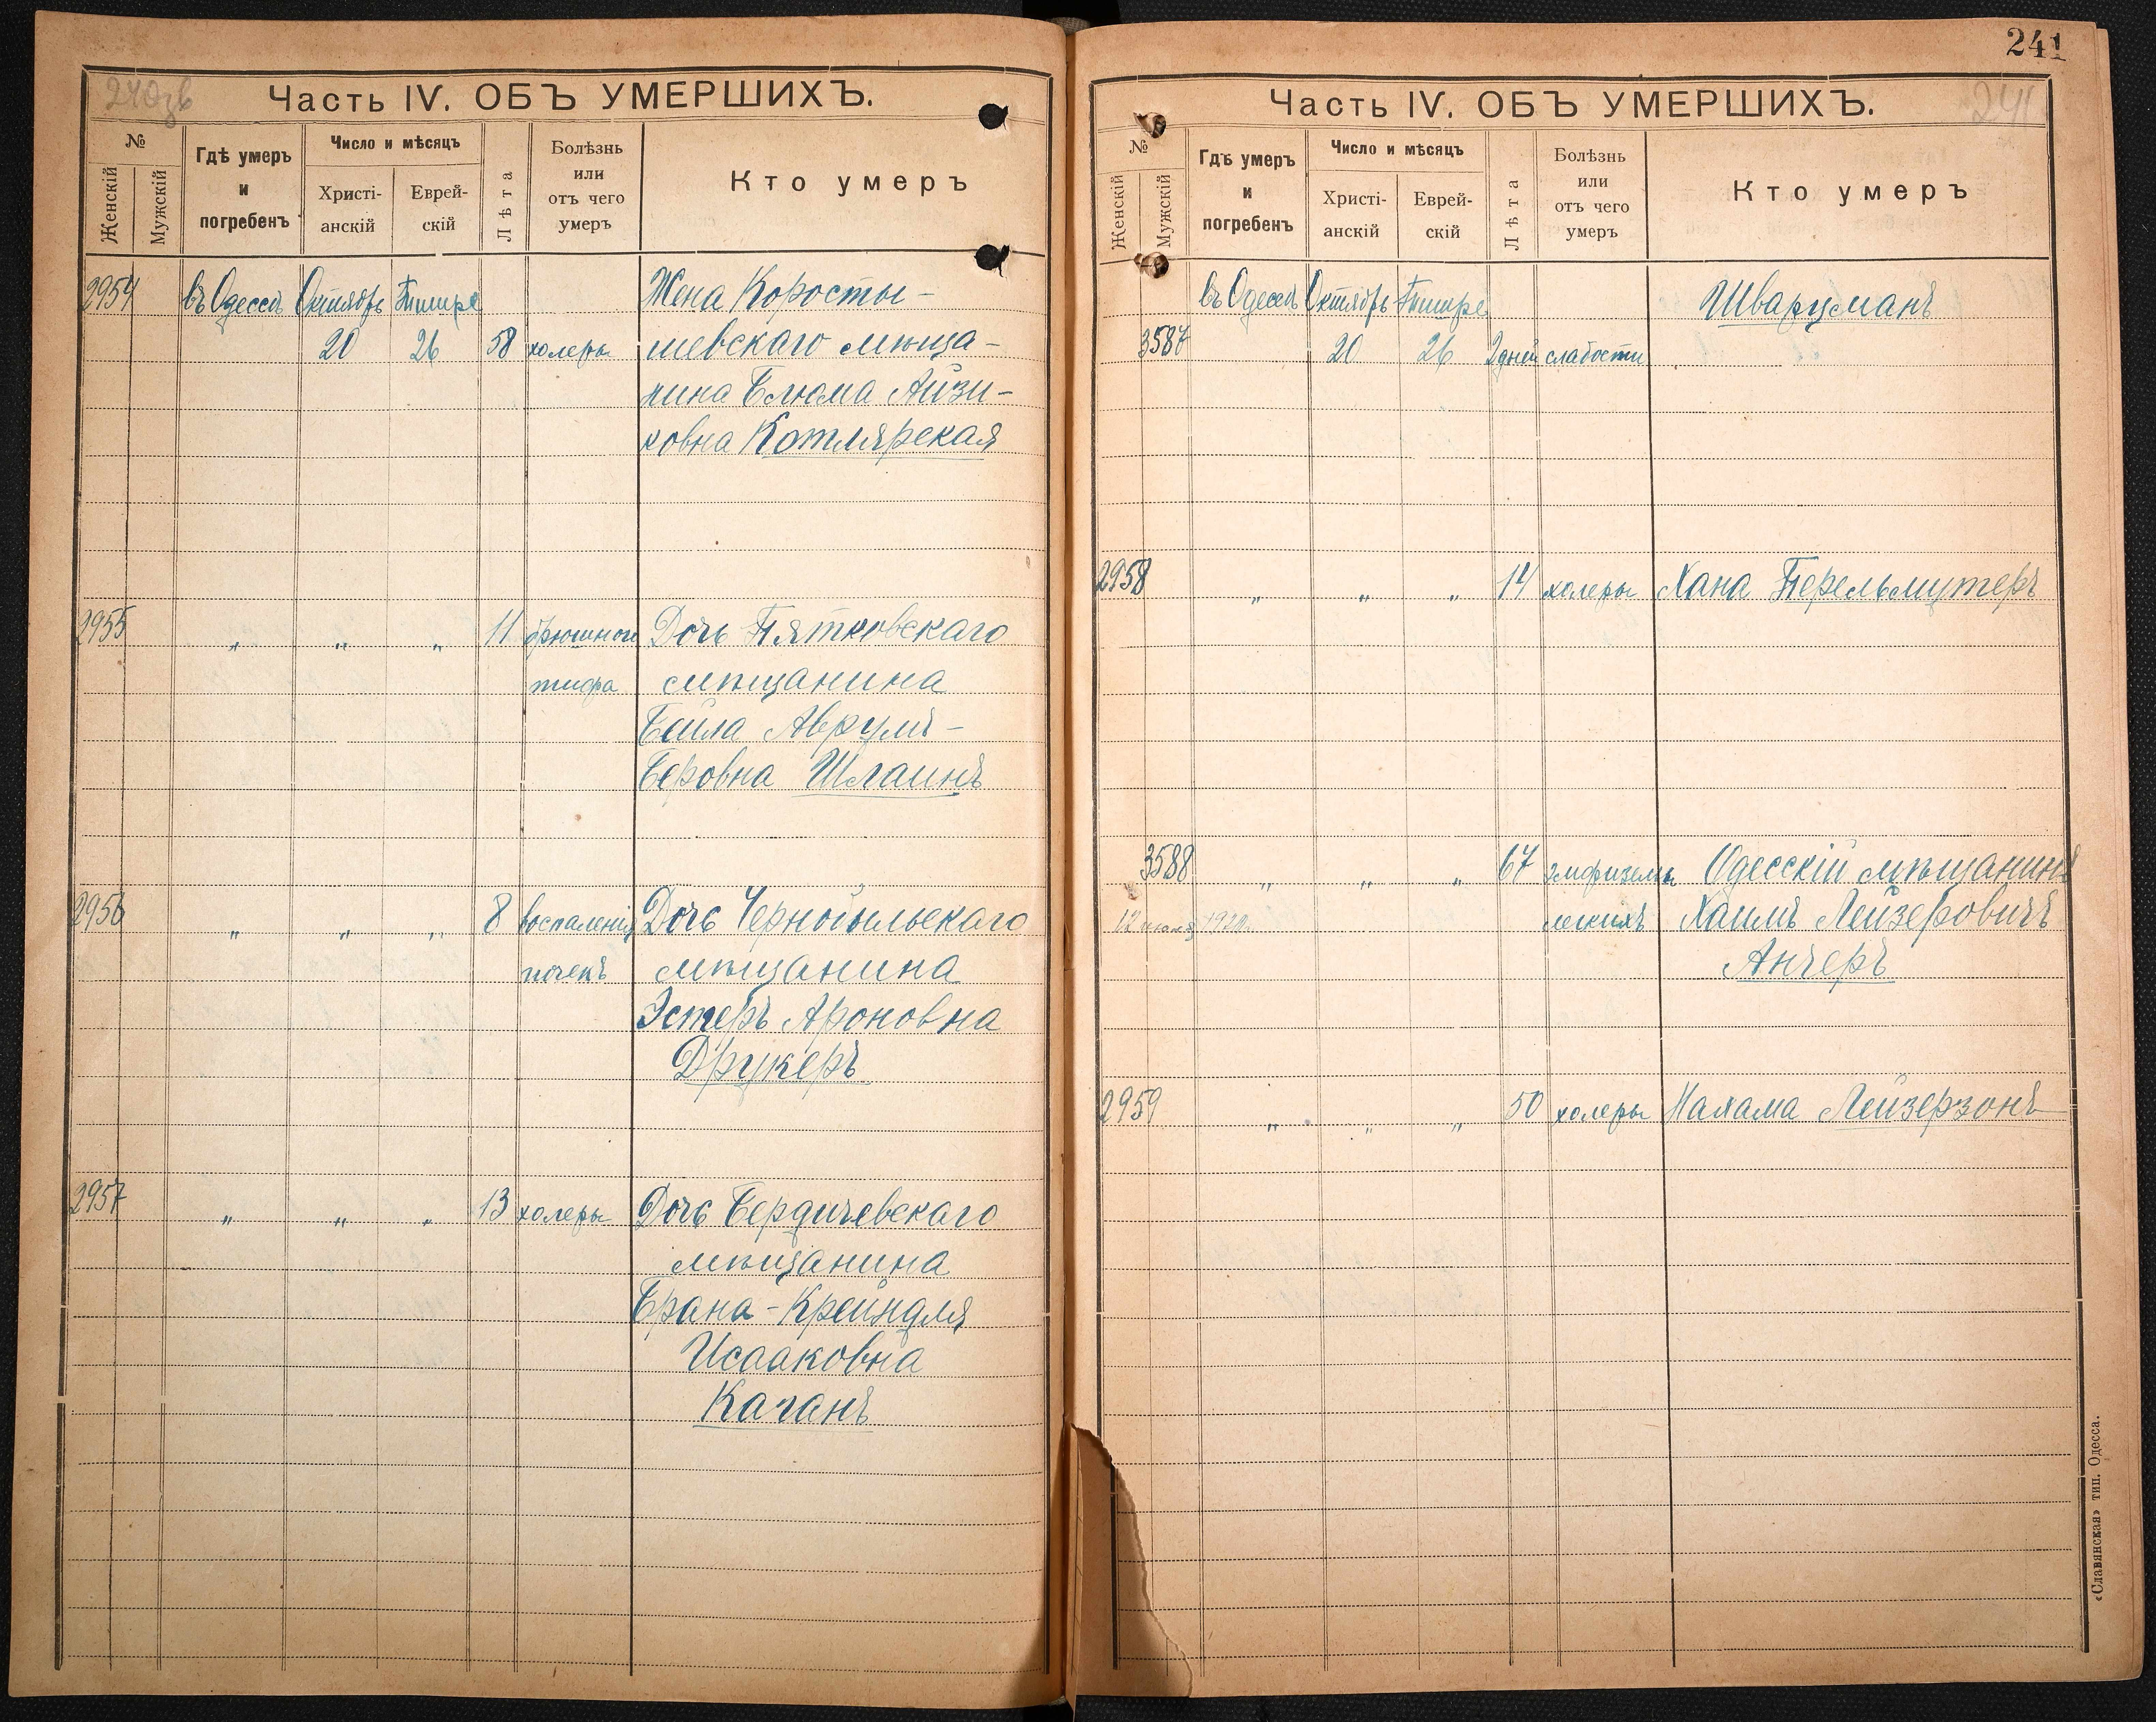 240зв
Часть IV. ОБЪ УМЕРШИХЪ.
№
Женскій
Мужскій
Гдѣ умеръ
и
погребенъ
Число и мѣсяцъ
Христі-
анскій
Еврей-
скій
Лѣта
Болѣзнь
или
отъ чего
умеръ
Кто умеръ
2954 въ Одессѣ Октябрь Тишре Жена Коросты-
20 26 58 холеры шевскаго мѣща-
нина Блюма Айзи-
ковна Котлярская
2955 " " " 11 брюшного Дочь Пятковскаго
тифа мѣщанина
Бейла Аврумъ-
Беровна Шлаинъ
2956 " " " 8 воспаленія Дочь Чернобыльскаго
почекъ мѣщанина
Эстеръ Ароновна
Друкеръ
2957 " " " 13 холеры Дочь Бердичевскаго
мѣщанина
Брана-Крейндля
Исааковна
Каганъ
241
241
Часть IV. ОБЪ УМЕРШИХЪ.
№
Женскій
Мужскій
Гдѣ умеръ
и
погребенъ
Число и мѣсяцъ
Христі-
анскій
Еврей-
скій
Лѣта
Болѣзнь
или
отъ чего
умеръ
Кто умеръ
въ Одессѣ Октябрь Тишре Шварцманъ
3587 20 26 2 дней слабости
2958 " " " 14 холеры Хана Перельмутеръ
3588 " " " 67 эмфиземы Одесскій мѣщанинъ
легкихъ Хаимъ Лейзеровичъ
Анчеръ
2959 " " " 50 холеры Нахама Лейзерзонъ
«Славянская» тип. Одесса.